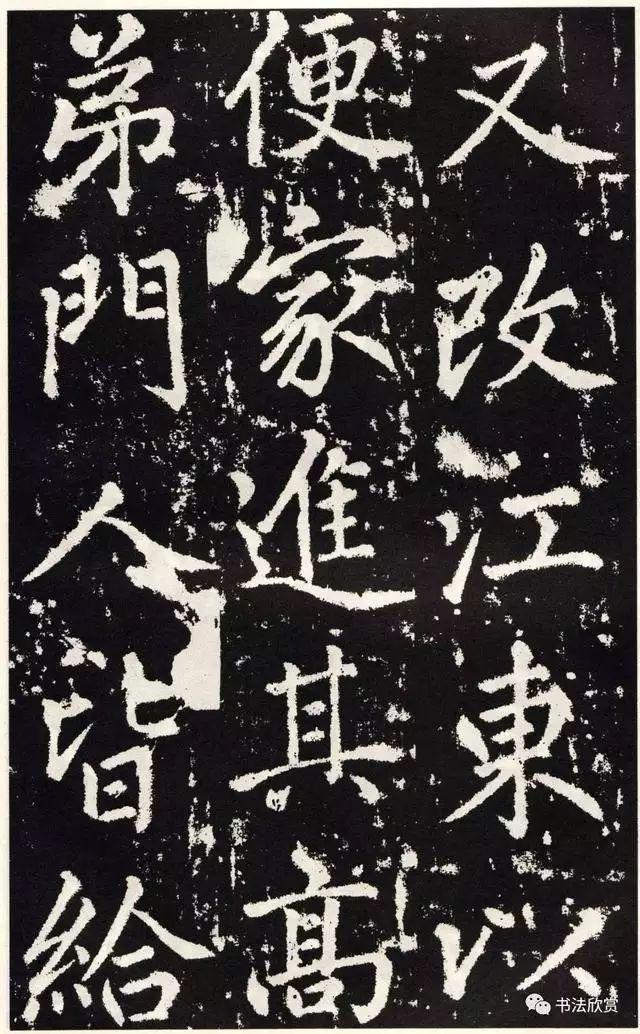 又改江東以
便家進其高
弟門人皆給
书法欣赏